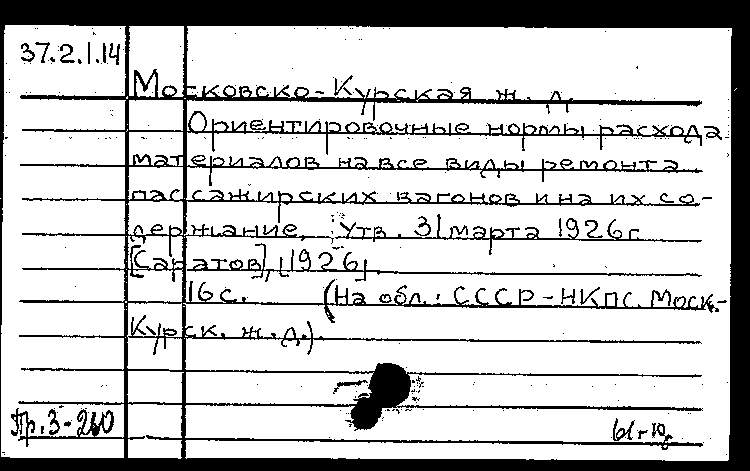 37.2.1.14
Московско-Курская ж. д.
Ориентировочные нормы расхода
материалов на все виды ремонта
пассажирских вагонов и на их со-
держание. Утв. 31 марта 1926 г.
[Саратов], [1926].
16 с. (На обл.: СССР-НКПС. Моск.-
Курск. ж. д.).
Пр. 3-260